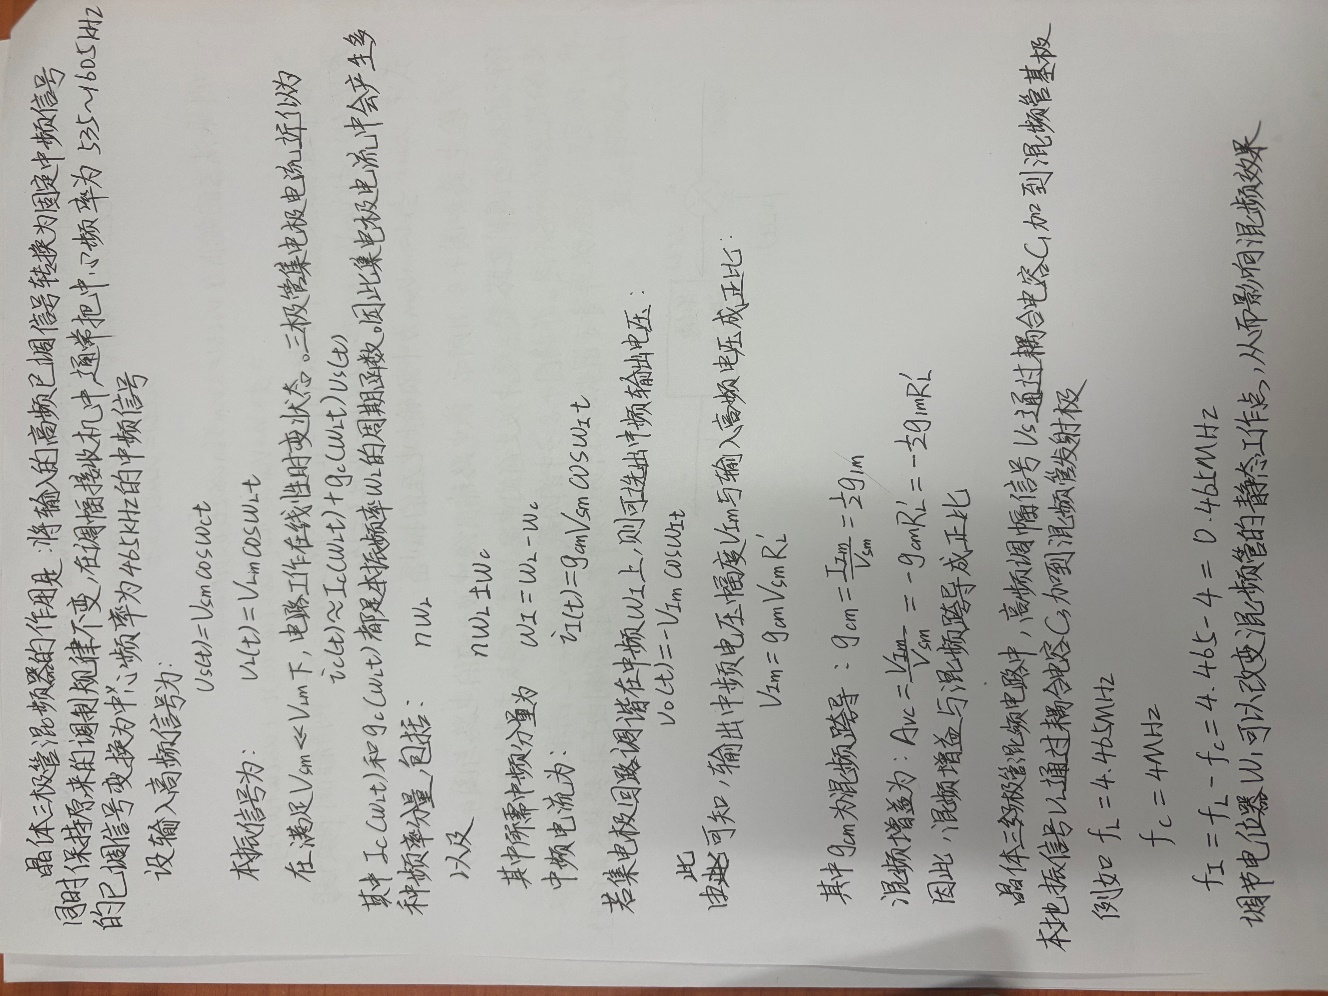 晶体三极管混频器的作用是：将输入的高频已调信号转换为固定中频信号
同时保持原来的调制规律不变，在调幅接收机中，通常把中心频率为 535~1605kHz
的已调信号变换为中心频率为465kHz的中频信号
设输入高频信号为：
Us(t)=Vsm cos wct
本振信号为： UL(t)=VLm cos wLt
在满足 Vsm << VLm下，电路工作在线性时变状态。三极管集电极电流近似为
ic(t)≈Ic(wLt)+gc(wLt)Us(t)
其中 Ic(wLt)和gc(wLt)都是本振频率wL的周期函数。因此集电极电流中会产生多
种中频率分量，包括： nwL
以及 nwL±wc
其中所需中频分量为 wI=wL-wc
中频电流为： iI(t)=gcmVsm cos wIt
若集电极回路调谐在中频wI上，则可选出中频输出电压：
Vo(t)=-VIm cos wIt
由此可知，输出中频电压幅度VIm与输入高频电压成正比：
VIm=gcmVsmRL'
其中gcm为混频跨导：gcm=IIm/Vsm=½g1m
混频增益为：Avc=VIm/Vsm=-gcmRL'=-½g1mRL'
因此，混频增益与混频跨导成正比
晶体三极管混频电路中，高频调幅信号Us通过耦合电容C1加到混频管基极
本地振信号UL通过耦合电容C3加到混频管发射极
例如 fL=4.465MHz
fc=4MHz
fI=fL-fc=4.465-4=0.465MHz
调节电位器W1可以改变混频管的静态工作点，从而影响混频效果